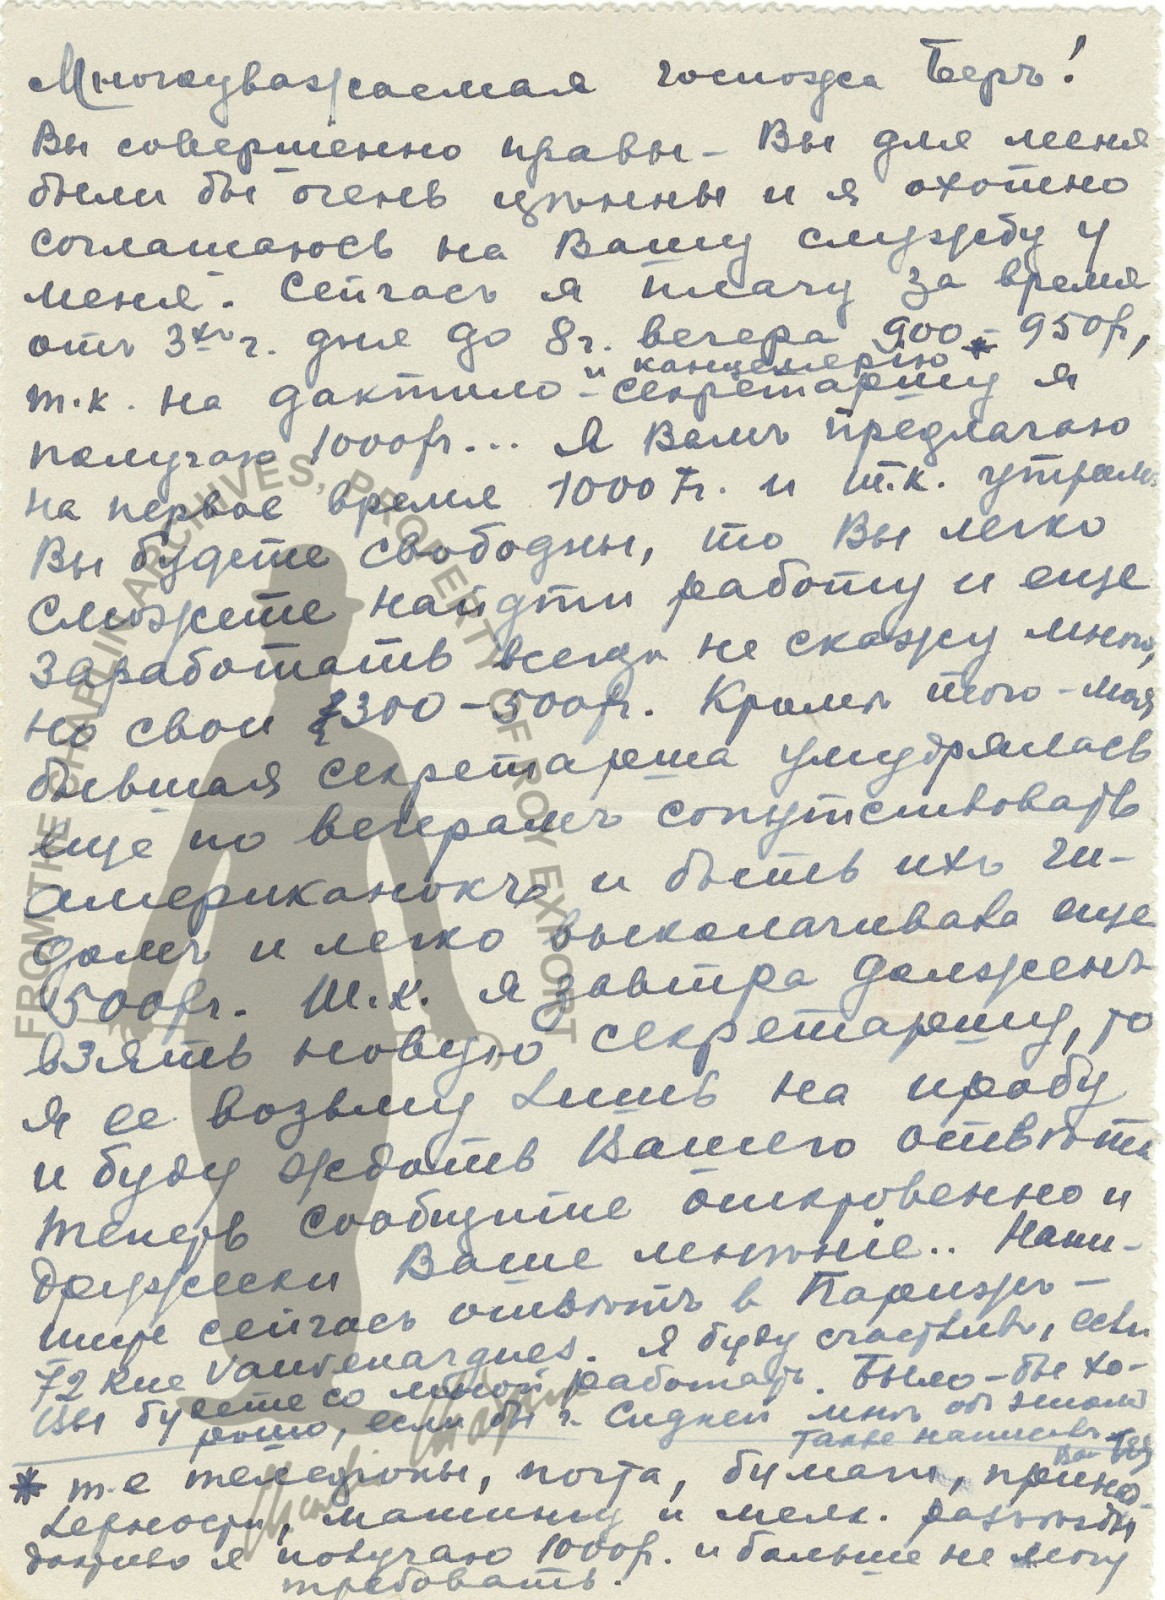 Многоуважаемая госпожа Беръ!
Вы совершенно правы – Вы для меня
были бы очень цѣнны и я охотно
соглашаюсь на Вашу службу у
меня. Сейчасъ я плачу за время
отъ 3хъ ч. дня до 8ч. вечера 900 * – 950fr,
т.к. на дактило – секретаршу я
и канцелярию
получаю 1000fr... Я Вамъ предлагаю
на первое время 1000 Fr. и т.к. утромъ
Вы будете свободны, то Вы легко
сможете найдти работу и еще
заработать всегда не скажу много,
но свои 300 – 500fr. Кромѣ того – моя
бывшая секретарша умудрялась
еще по вечерамъ сопутствовать
американокъ и быть ихъ ги-
домъ и легко выколачивала еще
500fr. Т.к. я завтра долженъ
взять новую секретаршу, то
я ее возьму лишь на пробу
и буду ждать Вашего отвѣта
теперь сообщите откровенно и
дружески Ваше мнѣніе.. Напи-
шите сейчасъ отвѣтъ в Парижъ –
72 Rue Vauvenargues. Я буду счастливъ, если
Вы будете со мной работать. Было-бы хо-
рошо, если бы г. Сидней мнѣ объ этомъ
также написалъ
* т-е телефоны, почта, бумаги, принад-
лежности, машинку и мелк. разъѣзды
дактило я получаю 1000fr. и больше не могу
требовать.
FROM THE CHAPLIN ARCHIVES, PROPERTY OF ROY EXPORT